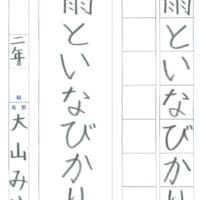 雨といなびかり
雨といなびかり
二年 大山み